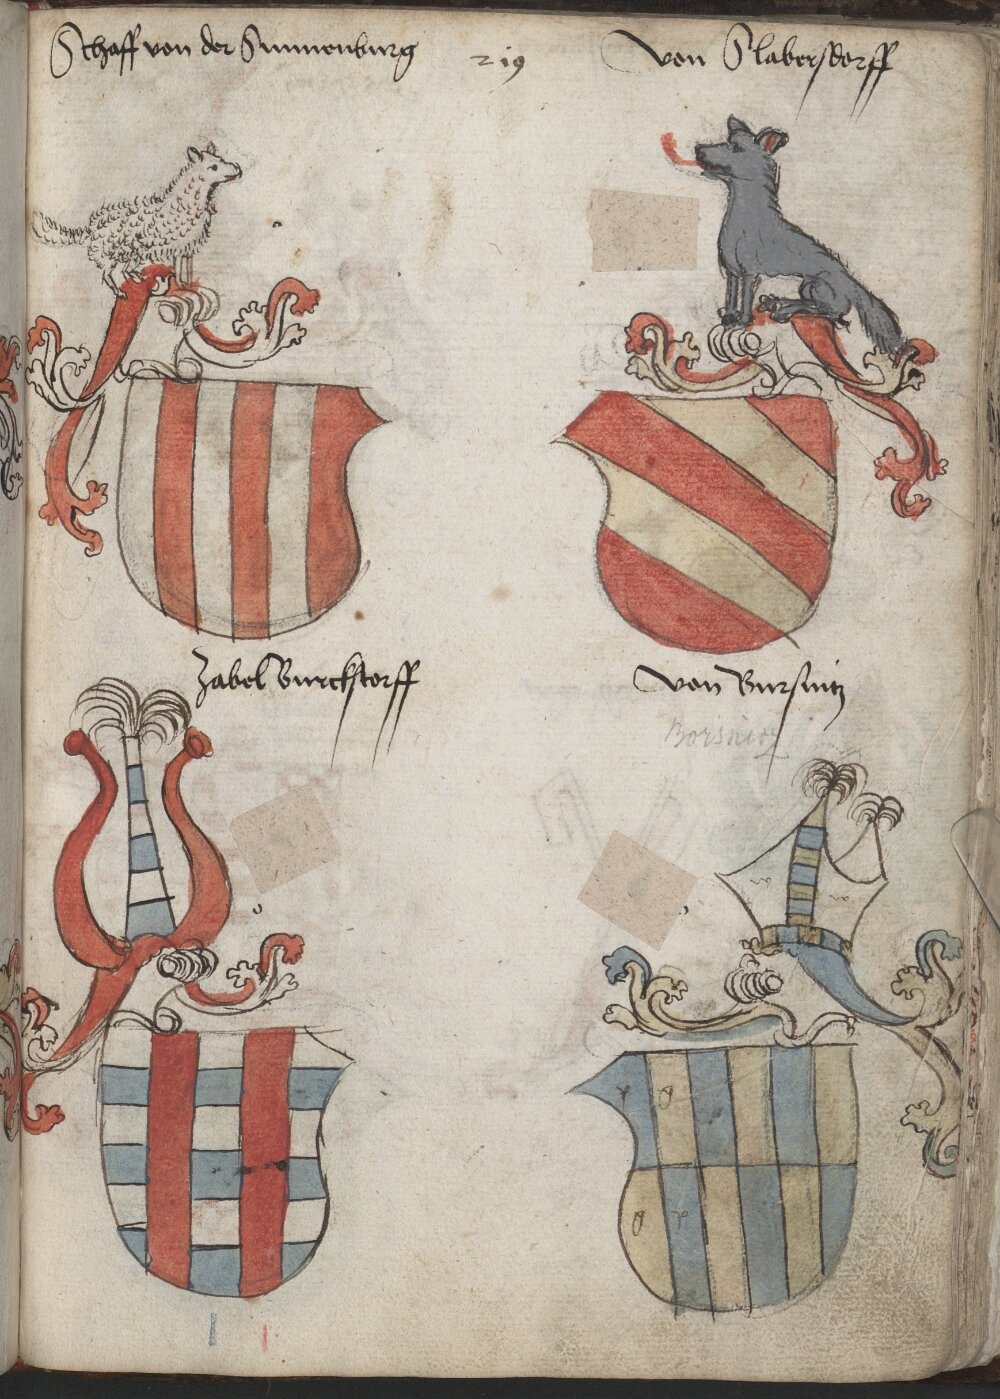 Schaff von der Sunnenburg
219
von Slabersdorff
Zabel Burckstorff
von Bursnitz
Borsnicz